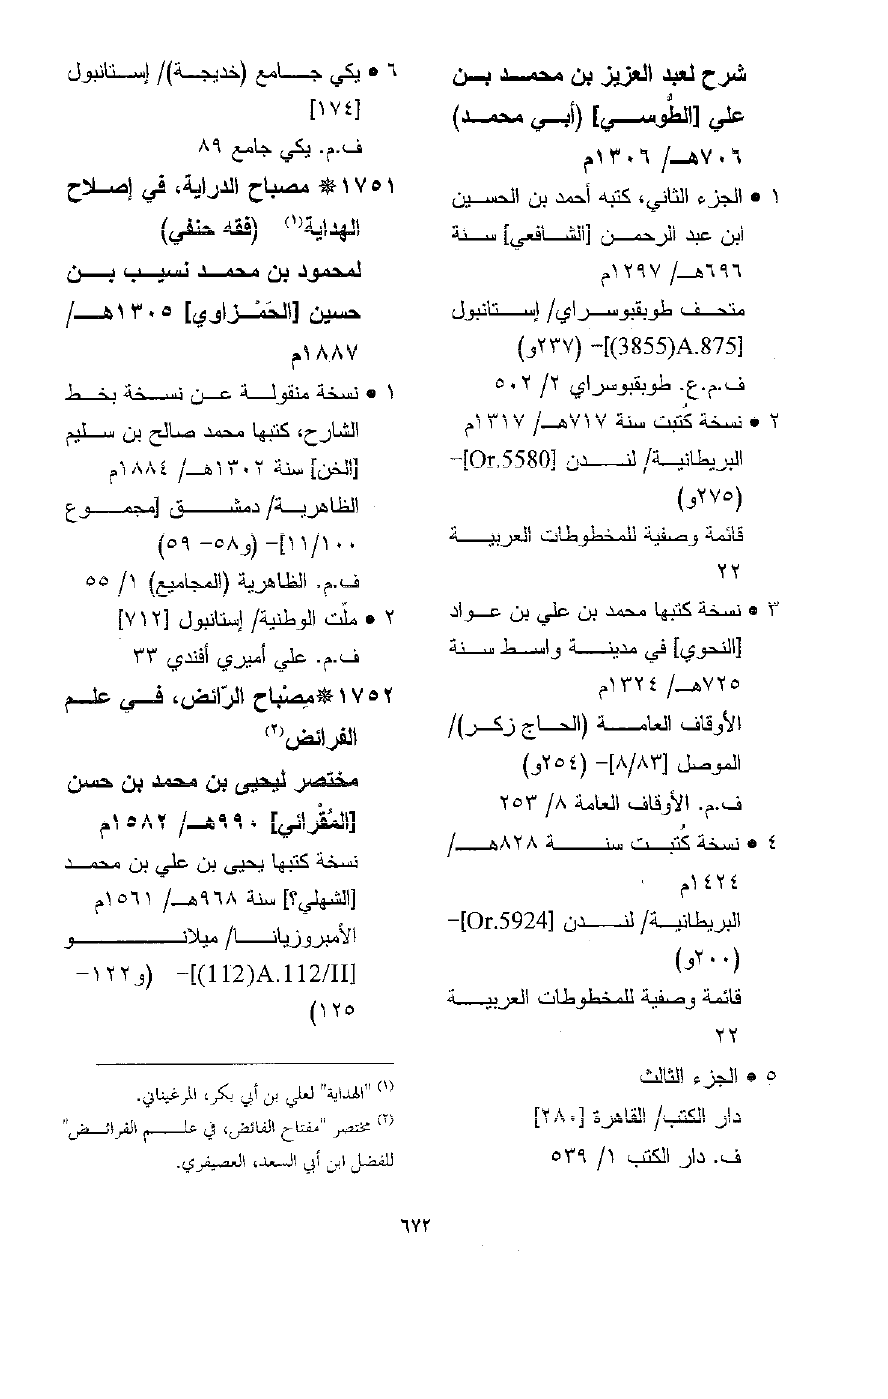 شرح لعبد العزيز بن محمد بن
علي [الطُّوسي] (أبي محمد)
٧٠٦هـ/ ١٣٠٦م
١ • الجزء الثاني، كتبه أحمد بن الحسين
ابن عبد الرحمن [الشافعي] سنة
٦٩٦هـ/ ١٢٩٧م
متحف طوبقبوسراي/ إستانبول
[3855)A.875)]- (٢٣٧و)
ف.م.ع. طوبقبوسراي ٢/ ٥٠٢
٢ • نسخة كُتبت سنة ٧١٧هـ/ ١٣١٧م
البريطانية/ لندن [Or.5580]-
(٢٧٥و)
قائمة وصفية للمخطوطات العربية
٢٢
٣ • نسخة كتبها محمد بن علي بن عواد
[النحوي] في مدينة واسط سنة
٧٢٥هـ/ ١٣٢٤م
الأوقاف العامة (الحاج زكر)/
الموصل [٨/٨٣]- (٢٥٤و)
ف.م. الأوقاف العامة ٨/ ٢٥٣
٤ • نسخة كُتبت سنة ٨٢٨هـ/
١٤٢٤م
البريطانية/ لندن [Or.5924]-
(٢٠٠و)
قائمة وصفية للمخطوطات العربية
٢٢
٥ • الجزء الثالث
دار الكتب/ القاهرة [٢٨٠]
ف. دار الكتب ١/ ٥٣٩
٦ • يكي جامع (خديجة)/ إستانبول
[١٧٤]
ف.م. يكي جامع ٨٩
١٧٥١* مصباح الدراية، في إصلاح
الهداية(١) (فقه حنفي)
لمحمود بن محمد نسيب بن
حسين [الحَمْزاوي] ١٣٠٥هـ/
١٨٨٧م
١ • نسخة منقولة عن نسخة بخط
الشارح، كتبها محمد صالح بن سليم
[الخن] سنة ١٣٠٢هـ/ ١٨٨٤م
الظاهرية/ دمشق [مجموع
١١/١٠٠]- (و٥٨- ٥٩)
ف.م. الظاهرية (المجاميع) ١/ ٥٥
٢ • ملّت الوطنية/ إستانبول [٧١٢]
ف.م. علي أميري أفندي ٣٣
١٧٥٢*مِصْباح الرّائض، في علم
الفرائض(٢)
مختصر ليحيى بن محمد بن حسن
[المُقْرائي] ٩٩٠هـ/ ١٥٨٢م
نسخة كتبها يحيى بن علي بن محمد
[الشهلي؟] سنة ٩٦٨هـ/ ١٥٦١م
الأمبروزيانا/ ميلانو
[112)A.112/II)]- (و١٢٢-
١٢٥)
(١) "الهداية" لعلي بن أبي بكر، المرغيناني.
(٢) مختصر "مفتاح الفائض، في علم الفرائض"
للفضل ابن أبي السعد، العصيفري.
٦٧٢